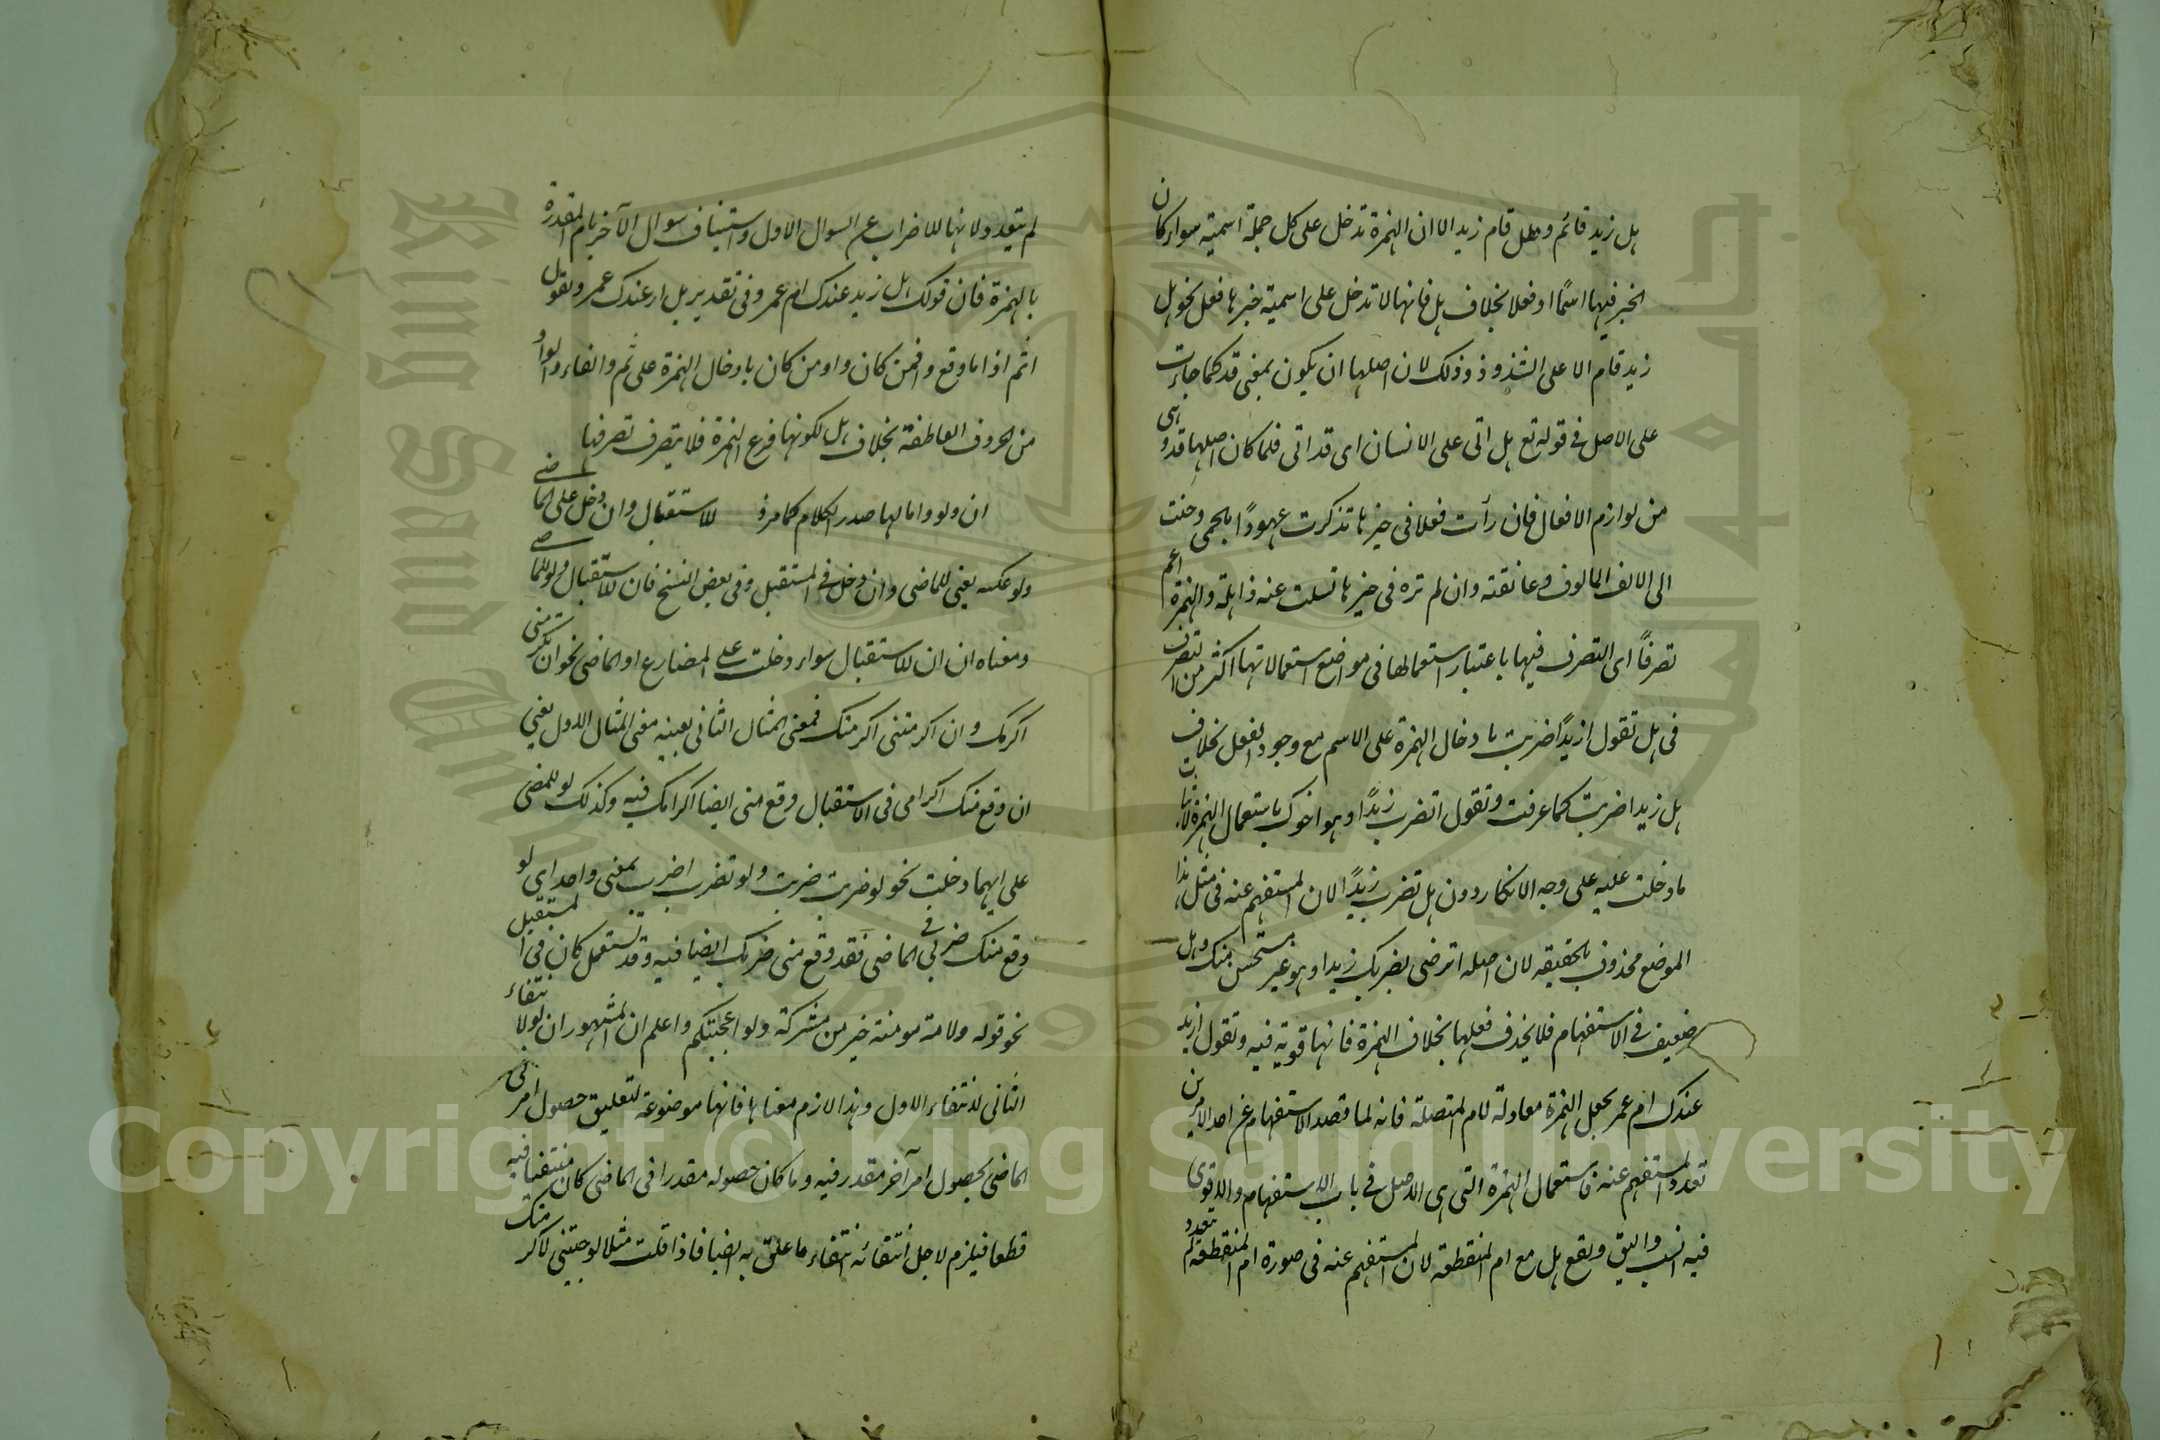 هل زيد قائم وهل قام زيد الا ان الهمزة تدخل على كل جملة اسمية سواء كان
الخبر فيها اسمًا او فعلا بخلاف هل فانها لا تدخل على اسمية خبرها فعل نحو هل
زيد قام الا على الشذوذ وذلك لان اصلها ان يكون بمعنى قد كما جاءت
على الاصل فى قوله تع هل اتى على الانسان اى قد اتى فلما كان اصلها قد وهى
من لوازم الافعال فان رأت فعلا فى حيزها تذكرت عهودًا بالحمى وحنت
الى الالف المالوف وعانقته وان لم تره فى حيزها تسلت عنه ذاهلة والهمزة اعم
تصرفًا اى التصرف فيها باعتبار استعمالها فى مواضع استعمالاتها اكثر من التصرف
فى هل تقول ازيدًا ضربت بادخال الهمزة على الاسم مع وجود الفعل بخلاف
هل زيدا ضربت كما عرفت وتقول اتضرب زيدًا وهو اخوك باستعمال الهمزة لاثبات
ما دخلت عليه على وجه الانكار دون هل تضرب زيدًا لان المستفهم عنه فى مثل هذا
الموضع محذوف بالحقيقه لان اصله اترضى بضربك زيدا وهو غير مستحسن منك وهل
ضعيف فى الاستفهام فلا يحذف فعلها بخلاف الهمزة فانها قوية فيه وتقول ازيد
عندك ام عمر بجعل الهمزة معادلة لام المتصلة فانه لما قصد الاستفهام عن احد الامرين
تعدد المستفهم عنه فاستعمال الهمزة التى هى الاصل فى باب الاستفهام والاقوى
فيه انسب واليق ويقع هل مع ام المنقطعة لان المستفهم عنه فى صورة ام المنقطعة لم يتعدد
لم يتعدد لانها للاضراب عن السوال الاول واستيناف سوال الآخر بام المقدرة
بالهمزة فان قولك هل زيد عندك ام عمر وفى تقدير بل اعندك عمر وتقول
اثم اذا ما وقع وافمن كان واومن كان بادخال الهمزة على ثم والفاء والواو
من الحروف العاطفة بخلاف هل لكونها فرع الهمزة فلا يتصرف تصرفها
ان ولو واما لها صدر الكلام كما مر فـ للاستقبال وان دخل على الماضى
ولو عكسه يعنى للماضى وان دخل فى المستقبل وفى بعض النسخ فان للاستقبال ولو للماضى
ومعناه ان ان للاستقبال سواء دخلت على المضارع او الماضى نحو ان تكرمنى
اكرمك وان اكرمتنى اكرمتك فمعنى المثال الثانى بعينه معنى المثال الاول يعنى
ان وقع منك اكرامى فى الاستقبال وقع منى ايضا اكرامك فيه وكذلك لو للمضى
على ايهما دخلت نحو لو ضربت ضربت ولو تضرب اضرب بمعنى واحد اى لو
وقع منك ضربى فى الماضى فقد وقع منى ضربك ايضا فيه وقد تستعمل كان فى المستقبل
نحو قوله ولامة مومنة خير من مشركة ولو اعجبتكم واعلم ان المشهور ان لو لانتفاء
الثانى لانتفاء الاول وهذا لازم معناها فانها موضوعة لتعليق حصول امر فى
الماضى بحصول امر آخر مقدر فيه وما كان حصوله مقدرا فى الماضى كان منتفيا فيه
قطعا فيلزم لاجل انتفائه انتفاء ما علق به ايضا فاذا قلت مثلا لو جئتنى لاكرمتك
Copyright © King Saud University
King Saud University
جامعة الملك سعود
1957